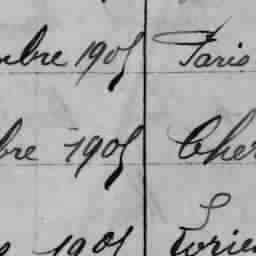 mbre 1905 Paris
bre 1905 Cher
1905 Lorie